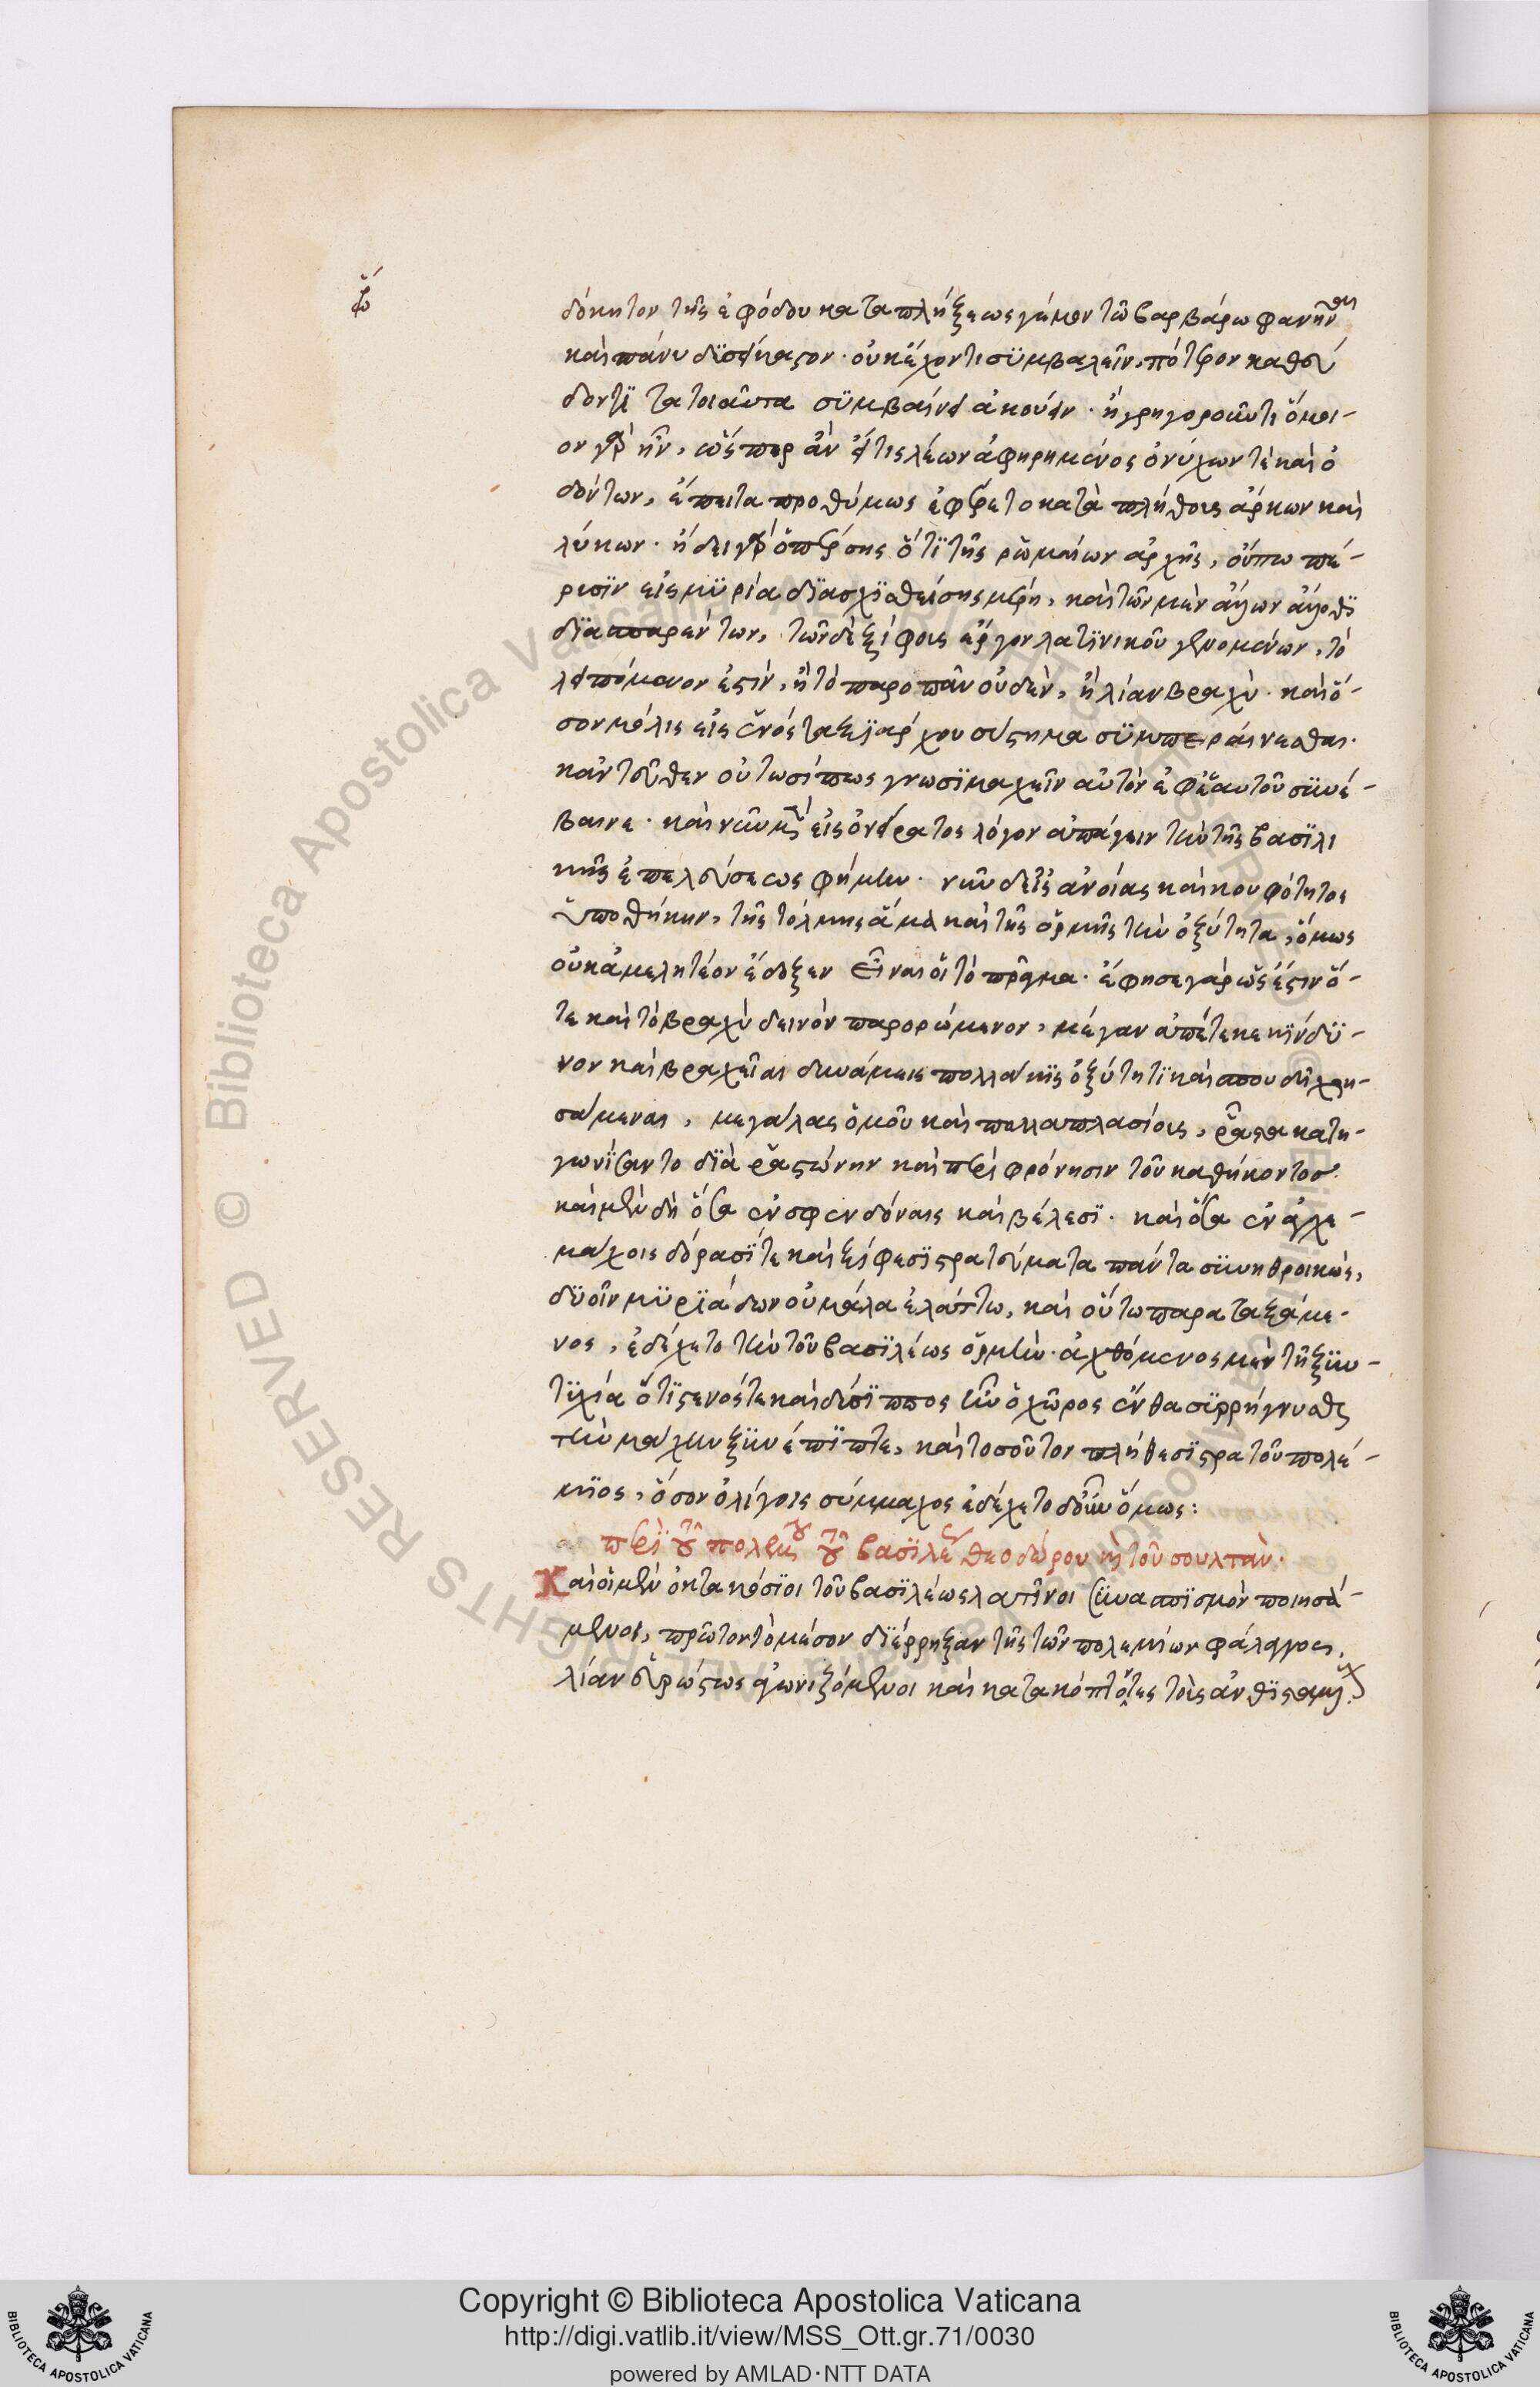 δόκητον τῆς ἐφόδου καταπλήξεως γέμον τῶ βαρβάρω φανῆναι
καὶ πάνυ δϊσείκαστον. οὐκ ἔχοντι σϋμβαλεῖν, πότερον καθεύ
δοντϊ τα τοιαῦτα σϋμβαίνει ἀκούειν. ἢ γρηγοροῦντι ὅμοι-
ον γὰρ ἦν, ὥσπερ ἂν εἴ τις λέων ἀφῃρημένος ὀνύχων τὲ καὶ ὀ
δόντων, ἔπειτα προθύμως ἐφέρετο κατὰ πλήθους ἄρκων καὶ
λύκων. ἤδει γὰρ ὁ πέρσης ὅτϊ τῆς ρωμαίων ἀρχῆς, οὔπω πέ-
ρυσϊν εἰς μϋρία δϊασχϊσθείσης μέρη, καὶ τῶν μὲν ἄλλων ἄλλοθϊ
δϊασπαρέντων, τῶν δὲ ξίφους ἔργον λατϊνικοῦ γενομένων, τὸ
λειπόμενον ἐστίν, ἢ τὸ παροπᾶν οὐδὲν, ἢ λίαν βραχὺ. καὶ ὅ-
σον μόλις εἰς ἑνὸς ταξϊάρχου σύστημα σϋμπεράινεσθαι.
καντεῦθεν οὑτωσί πως γνωσϊμαχεῖν αὐτὸν ἐφ' ἑαυτοῦ σϋνέ-
βαινε. καὶ νῦν μὲν εἰς ὀνείρατος λόγον ἀπάγειν τὴν τῆς βασϊλι
κῆς ἐπελεύσεως φήμην. νῦν δ' εἰς ἀνοίας καὶ κουφότητος
ὑποθήκην, τῆς τόλμης ἅμα καὶ τῆς ὁρμῆς τὴν ὀξύτητα, ὅμως
οὐκ ἀμελητέον ἔδοξεν εἶναι οἷ τὸ πρᾶγμα. ἔφησε γὰρ ὡς ἔστιν ὅ-
τε καὶ τὸ βραχὺ δεινὸν παρορώμενον, μέγαν ἀπέτεκε κϊνδϋ-
νον καὶ βραχεῖαι δυνάμεις πολλάκϊς ὀξύτητϊ καὶ σπουδῆ χρη-
σάμεναι, μεγάλας ὁμοῦ καὶ πολλαπλασίους, ρᾷστα κατη-
γωνϊσαντο δϊὰ ρᾳστώνην καὶ περιφρόνησιν τοῦ καθήκοντοσ.
καὶ μὲν δὴ ὅσα ἐν σφενδόναις καὶ βέλεσϊ. καὶ ὅσα ἐν ἀγχε-
μάχοις δόρασϊ τε καὶ ξίφεσϊ στρατεύματα πάντα σϋνηθροικὼς,
δϋοῖν μϋρϊάδων οὐ μάλα ἐλάττω, καὶ οὕτω παραταξάμε-
νος, ἐδέχετο τὴν τοῦ βασϊλέως ὁρμὴν. ἀχθόμενος μὲν τῆ ξϋν-
τϋχία ὅτϊ στενός τε καὶ δύσϊππος ἦν ὁ χῶρος ἔνθα σϋρρήγνυσθαι
τὴν μάχην ξϋνέπϊπτε, καὶ τοσοῦτον πλήθεσϊ στρατοῦ πολέ-
μϊος, ὅσον ὀλίγοις σύμμαχος ἐδέχετο δ' οὖν ὅμως:
περὶ τοῦ πολέμου τοῦ βασϊλέως θεοδώρου κὶ τοῦ σουλτὰν.
Καὶ οἱ μὲν ὀκτακόσϊοι τοῦ βασϊλέως λατῖνοι σϋνασπϊσμὸν ποιησά-
μενοι, πρῶτον τὸ μέσον δϊέρρηξαν τῆς τῶν πολεμίων φάλαγγος,
λίαν εὐρώστως ἀγωνιζόμενοι καὶ κατακόπτοντες τοὺς ἀνθϊσταμένους.
Copyright © Biblioteca Apostolica Vaticana
http://digi.vatlib.it/view/MSS_Ott.gr.71/0030
powered by AMLAD·NTT DATA